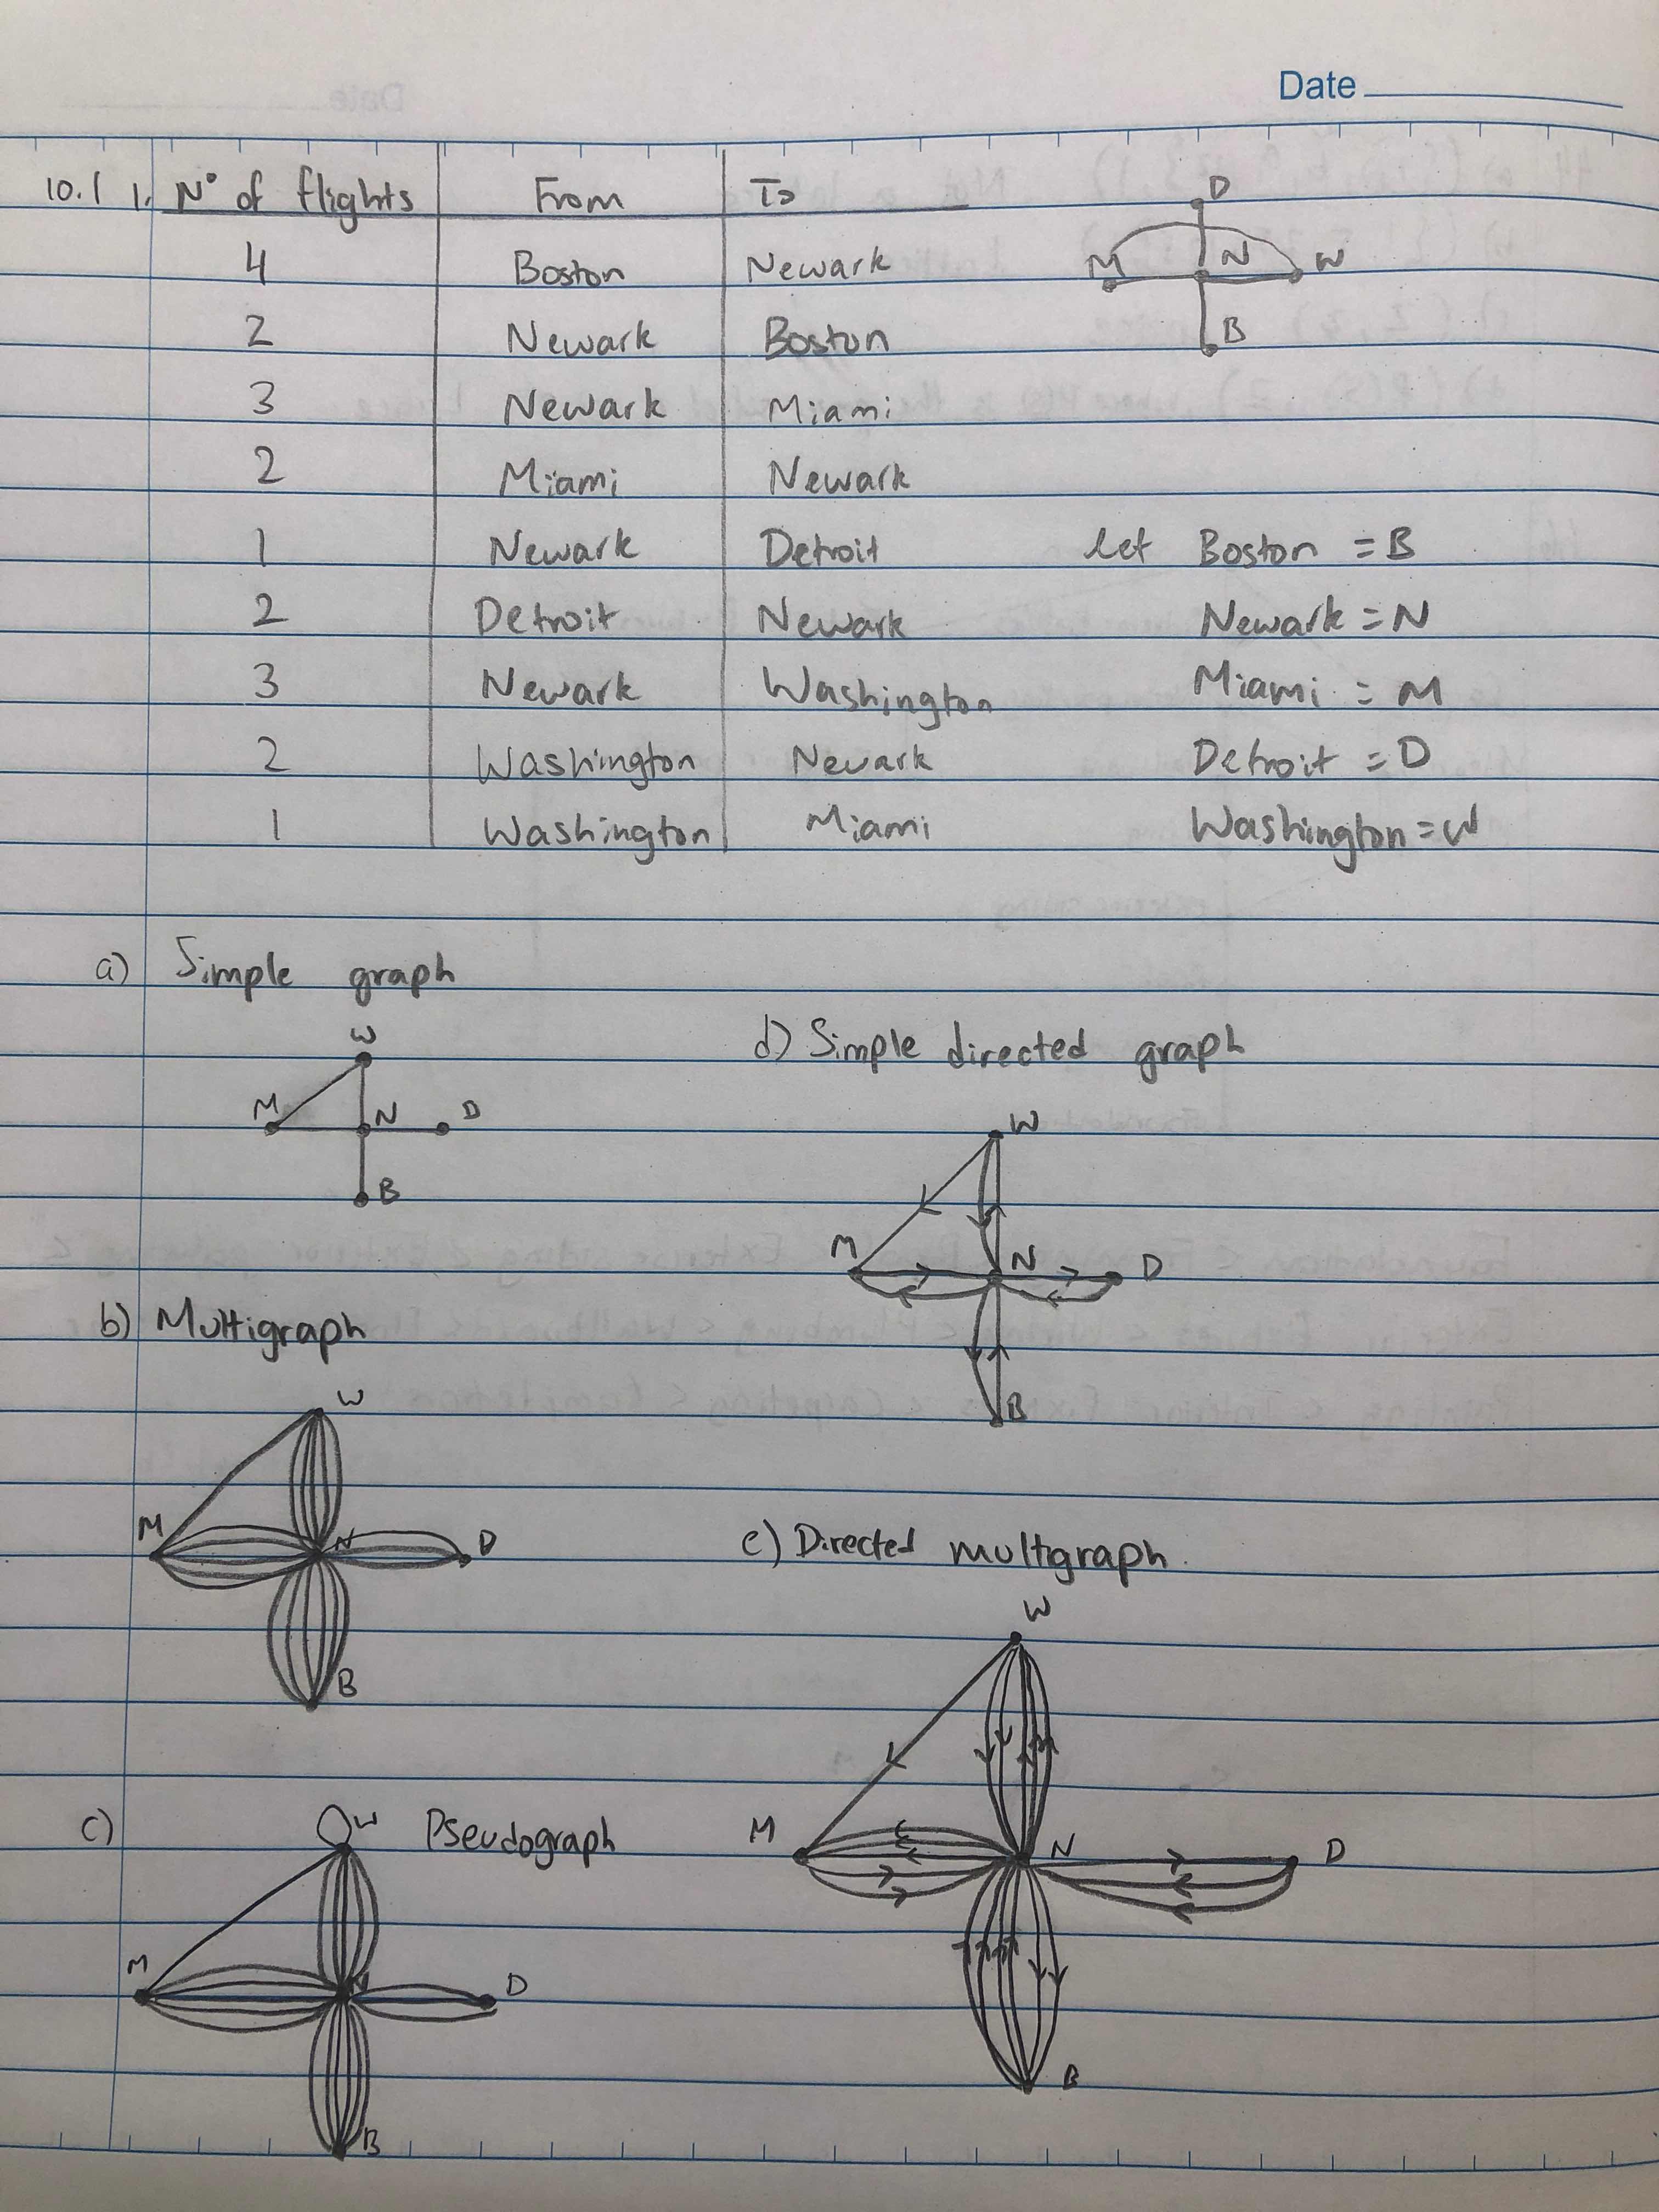 Date
10.1 1. N° of flights From To
4 Boston Newark
2 Newark Boston
3 Newark Miami
2 Miami Newark
1 Newark Detroit
2 Detroit Newark
3 Newark Washington
2 Washington Newark
1 Washington Miami
D
M N W
B
let Boston = B
Newark = N
Miami = M
Detroit = D
Washington = W
a) Simple graph
W
M N D
B
b) Multigraph
W
M N D
B
c) Pseudograph
W
M N D
B
d) Simple directed graph
W
M N D
B
e) Directed multigraph.
W
M N D
B